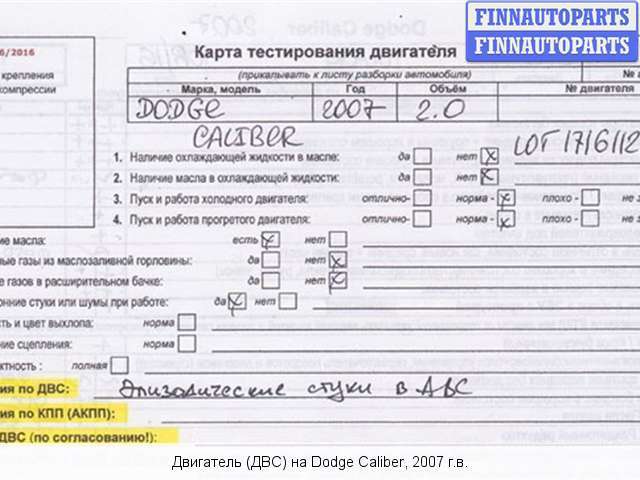 FINNAUTOPARTS
FINNAUTOPARTS
6/2016
Карта тестирования двигателя
крепления
компрессии
(прикалывать к листу разборки автомобиля)
№ а
Марка, модель Год Объём № двигателя
DODGE 2007 2.0
CALIBER LOT 176112
1. Наличие охлаждающей жидкости в масле: да нет x
2. Наличие масла в охлаждающей жидкости: да нет x
3. Пуск и работа холодного двигателя: отлично- норма - x плохо - не з
4. Пуск и работа прогретого двигателя: отлично- норма - x плохо - не з
ие масла: есть x нет
ные газы из маслозаливной горловины: да нет x
е газов в расширительном бачке: да нет x
онние стуки или шумы при работе: да x нет
сть и цвет выхлопа: норма
ание сцепления: норма
ктность : полная
ия по ДВС: Эпизодические стуки в ДВС
ия по КПП (АКПП):
ДВС (по согласованию!):
Двигатель (ДВС) на Dodge Caliber, 2007 г.в.